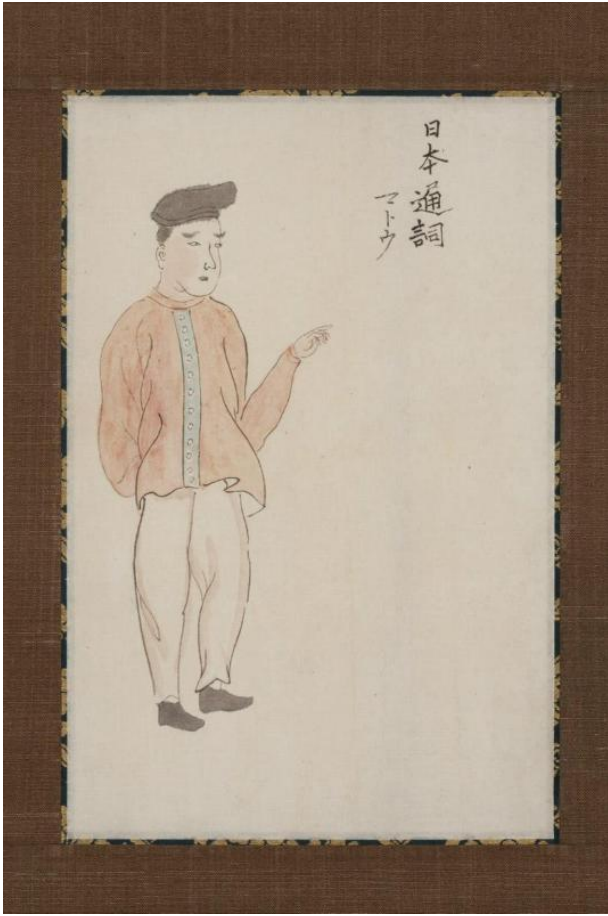 日本通詞
マトウ